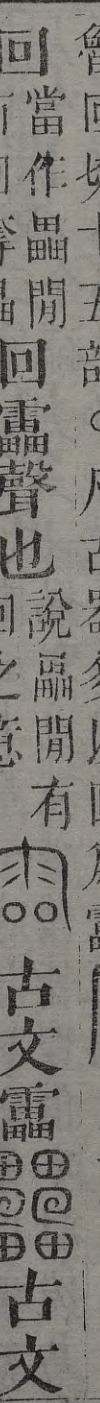 魯回切十五部。凡古器多以回爲靁
回當作畾閒
回靁聲也說畾閒有
回之意
古文靁
古文